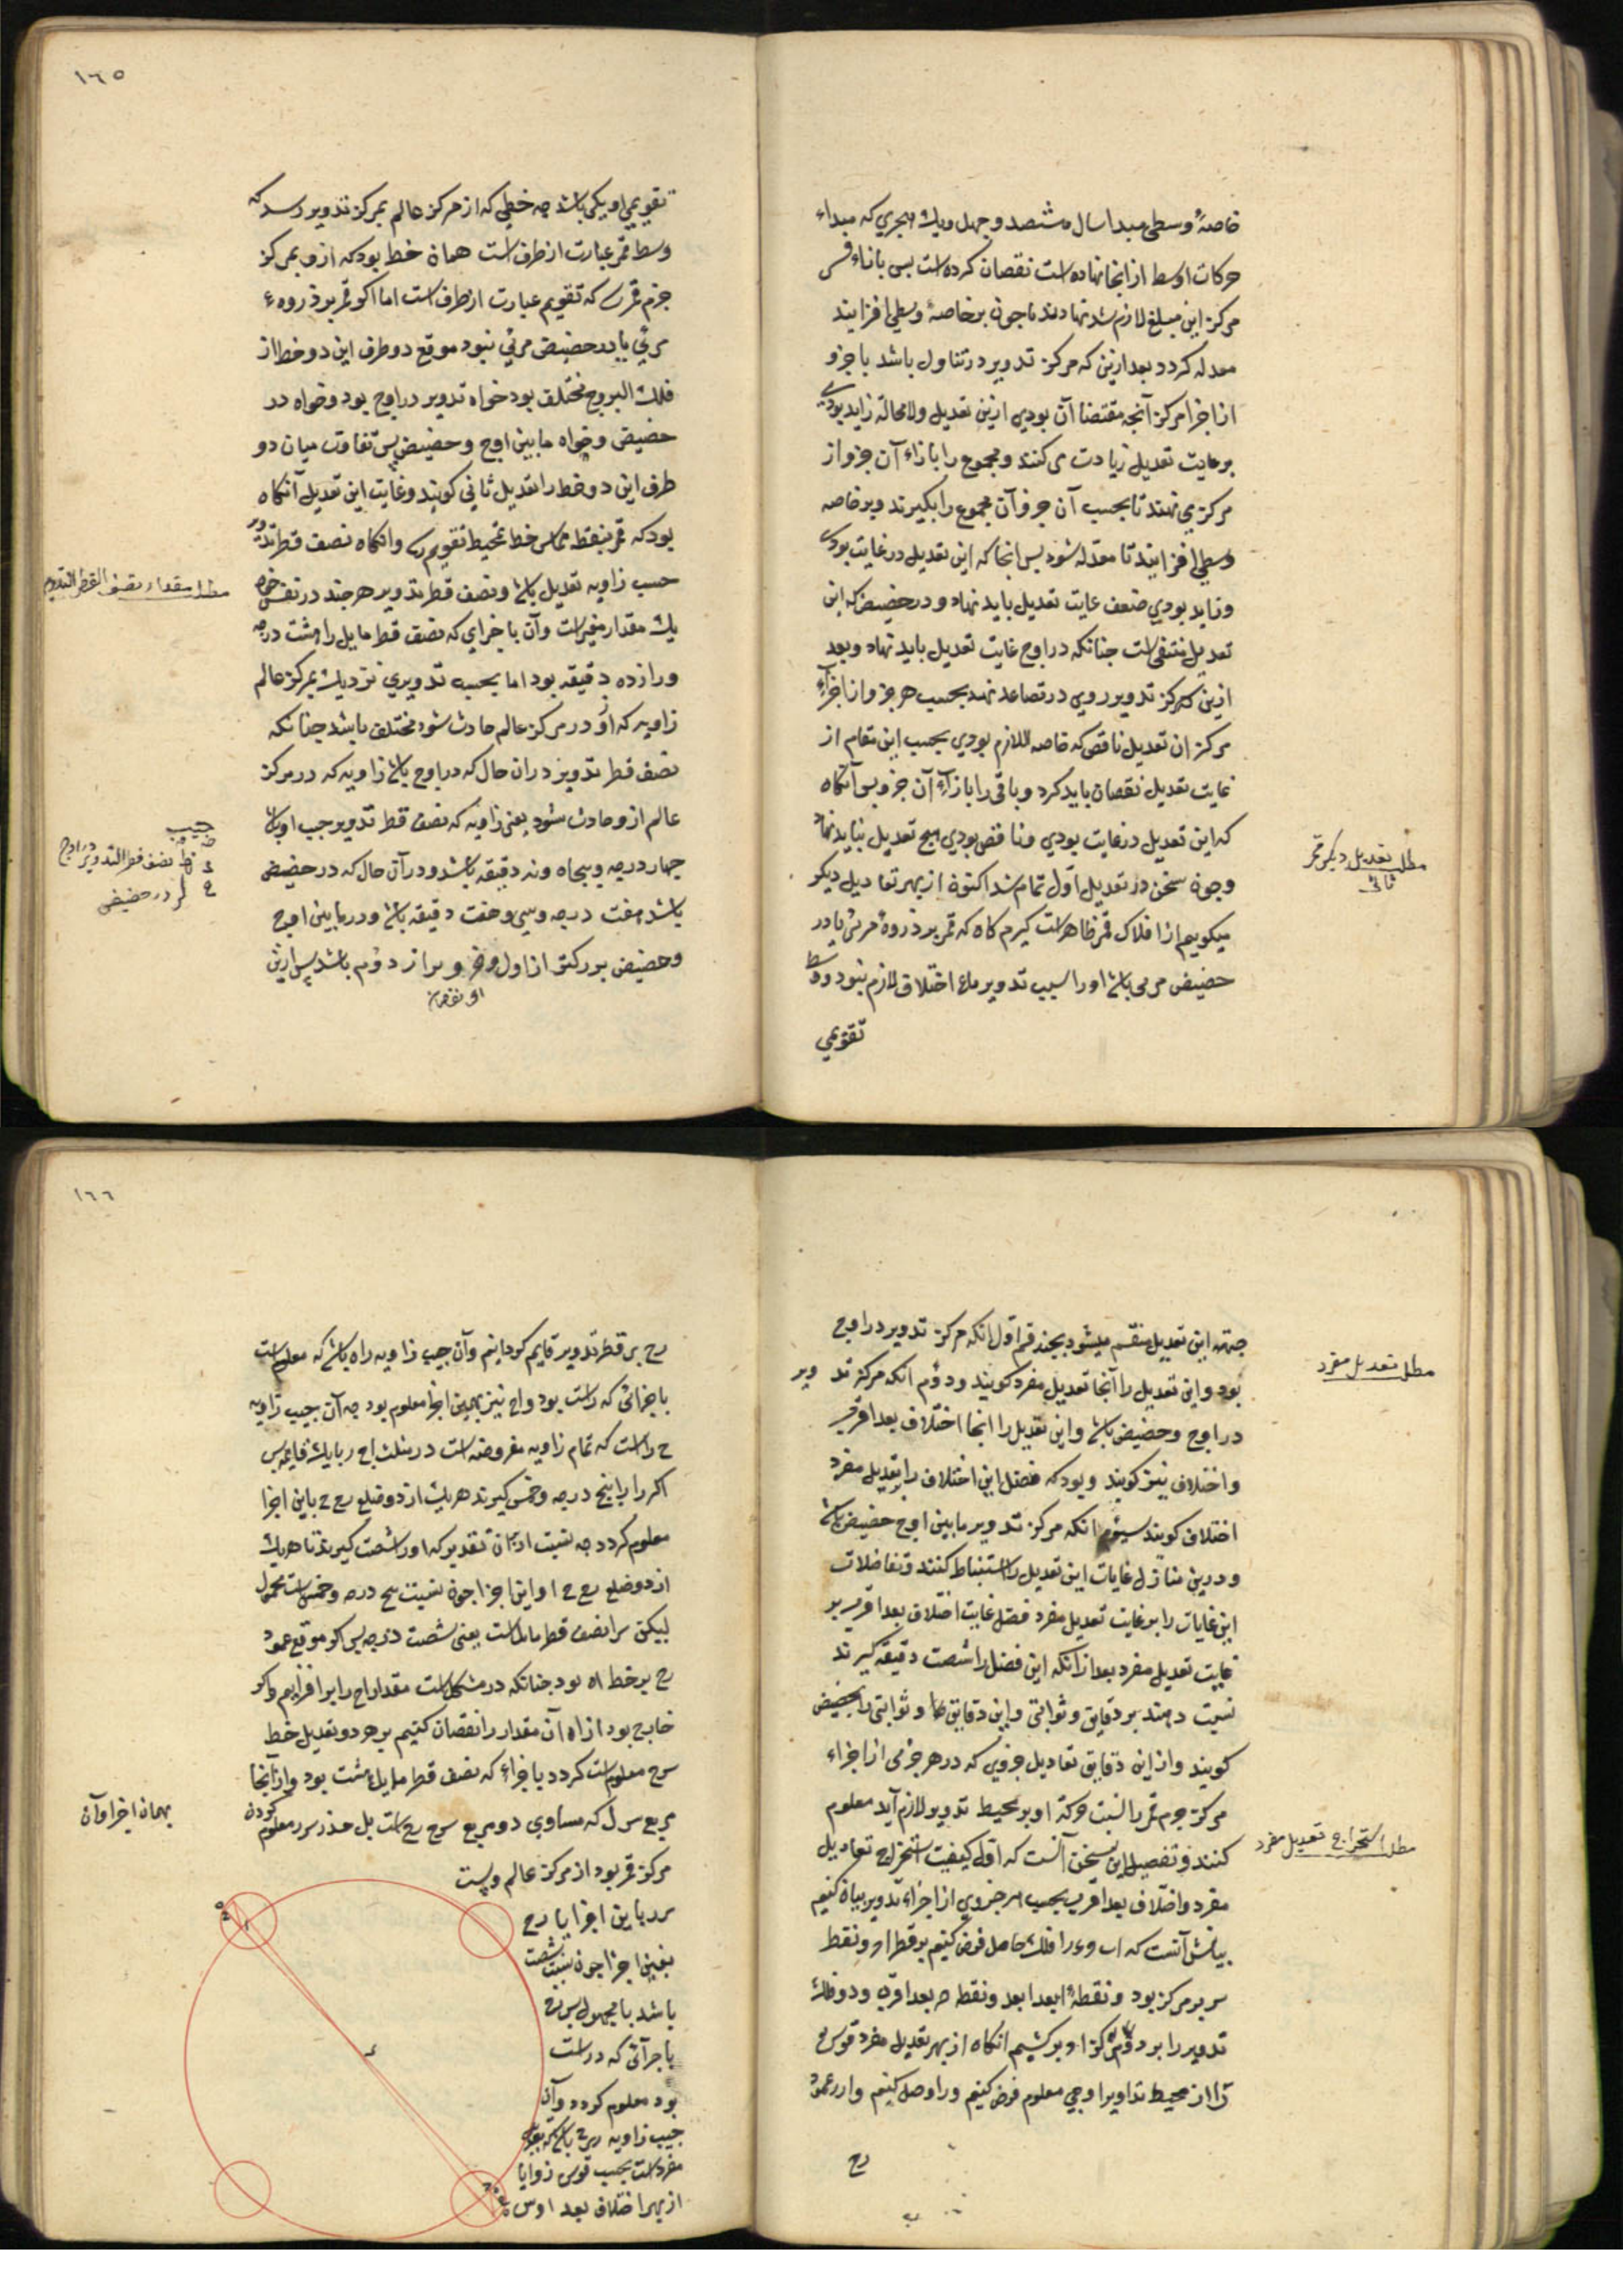 خاصهٔ وسطی مبدا سال هشتصد و چهل ویک هجری که مبداء
حرکات اوسط از انجا نهاده است نقصان کرده است بس بازاء
مرکز این مبلغ لازم شد نهادند تا چون بر خاصهٔ وسطی افزایند
معدله کردد بعد ازین که مرکز تدویر در تناول باشد با جزو
از اجزا مرکز آنچه مقتضا آن بودی ازین تعدیل ولا محالة زاید بودی
بر غایت تعدیل زیادت می کنند و مجموع را بازاء آن جزو از
مرکز می نهند تا بحسب آن جزو آن مجموع را بکیرند و بر خاصه
وسطی افزایند تا معدله شود بس انجا که این تعدیل در غایت بودی
و زاید بودی ضعف غایت تعدیل باید نهاد و در حضیض که این
تعدیل منتفی است چنانکه در اوج غایت تعدیل باید نهاد و بعد
ازین که مرکز تدویر روی در تصاعد نهد بحسب هر جزو از اجزاء
مرکز ان تعدیل ناقص که خاصه را لازم بودی بحسب این مقام از
غایت تعدیل نقصان باید کرد و باقی را بازاء آن جزو بس آنکاه
که این تعدیل در غایت بودی و ناقص بودی هیچ تعدیل نباید نهاد
و چون سخن در تعدیل اول تمام شد اکنون از بهر تعادیل دیکر
میکویم از افلاک قمر ظاهر است کیرم کاه که قمر بر ذروهٔ مرئی یا در
حضیض مرئی باشد او را بسبب تدویر اختلاف لازم نبود و وسط
تقویمی
مطلب تعدیل دیکر قمر
ثانی
١٦٥
تقویمی او یکی باشد چه خطی که از مرکز عالم بمرکز تدویر رسد که
وسط قمر عبارت از طرف است همان خط بود که ازو بمرکز
جرم قمر رسد که تقویم عبارت از طرف است اما اکر قمر بر ذروهٔ
مرئی یا در حضیض مرئی نبود موقع دو طرف این دو خط از
فلک البروج مختلف بود خواه تدویر در اوج بود و خواه در
حضیض و خواه ما بین اوج و حضیض پس تفاوت میان دو
طرف این دو خط را تعدیل ثانی کویند و غایت این تعدیل آنکاه
بود که قمر بنقطه تماس خط تقویم رسد وانکاه نصف قطر تدویر
جیب زاویه تعدیل باشد و نصف قطر تدویر هرچند در نفس خود
یک مقدار معین است وآن باجزای که نصف قطر مایل را هشت درجه
و یازده دقیقه بود اما بحسب تدویری نزدیک بمرکز عالم
زاویه که او در مرکز عالم حادث شود مختلف باشد چنانکه
نصف قطر تدویر در ان حال که در اوج باشد زاویه که در مرکز
عالم ازو حادث شود یعنی زاویه که نصف قطر تدویر جیب او باشد
چهار درجه و پنجاه ونه دقیقه باشد و در آن حال که در حضیض
باشد هفت درجه وسی و هفت دقیقه باشد و در ما بین اوج
و حضیض بزرکتر از اول و خردتر از دوم باشد پس ازین
مطلب مقدار نصف القطر التدویر
جیب
نصف قطر التدویر در اوج
در حضیض
جهته این تعدیل منقسم میشود بچند قسم اول انکه مرکز تدویر در اوج
بود و این تعدیل را آنجا تعدیل مفرد کویند و دوم انکه مرکز تدویر
در اوج و حضیض باشد و این تعدیل را انجا اختلاف بعد اقرب
و اختلاف نیز کویند و بود که فضل این اختلاف را بر تعدیل مفرد
اختلاف کویند سیوم انکه مرکز تدویر ما بین اوج حضیض باشد
و درین منازل غایات این تعدیل را استنباط کنند و تفاضلات
این غایات را بر غایت تعدیل مفرد فضل غایت اختلاف بعد اقرب بر
غایت تعدیل مفرد بعد از آنکه این فضل را شصت دقیقه کیرند
نسبت دهند بر دقایق و ثوانی و این دقایق ها و ثوانی را بحضیض
کویند و از این دقایق تعادیل جزوی که در هر جزءی از اجزاء
مرکز جرم قمر را بنسبت حرکة او بر محیط تدویر لازم آید معلوم
کنند و تفصیل این سخن آنست که اول کیفیت استخراج تعادیل
مفرد و اختلاف بعد اقرب بحسب هر جزوی از اجزاء تدویر بیان کنیم
بیانش آنست که اب وء را فلک حامل فرض کنیم بر قطر اه و نقطه
س مرکز بود و نقطهٔ ا بعد ابعد و نقطه ه بعد اقرب و دو فلک
تدویر را بر دو مرکز ا و ه برکشیم انکاه از بهر تعدیل مفرد قوس
را از محیط تداویر اوجی معلوم فرض کنیم و را وصل کنیم و از ر عمود
رح
مطلب تعدیل مفرد
مطلب استخراج تعدیل مفرد
١٦٦
رح بر قطر تدویر قایم کردانیم وآن جیب زاویه راه باشد که معلوم است
باجزائی که راست بود واح نیز بهمین اجزا معلوم بود چه آن جیب زاویه
ح راست که تمام زاویه مفروضه است در مثلث اح ر با یک قایمه پس
اکر را پنج درجه و خمس کیرند هر یک از دو ضلع رح ح باین اجزا
معلوم کردد چه نسبت از آن تقدیر که او را شصت کیرند تا هریک
از دو ضلع رح ح ا و این اجزا چون نسبت درجه و خمس است بمجهول
لیکن س ا نصف قطر مایل است یعنی شصت درجه پس اکر موقع عمود
رح بر خط اه بود چنانکه در شکل است مقدار اح را بر افزایم واکر
خارج بود از اه آن مقدار را نقصان کنیم بر هر دو تعدیل خط
س ح معلوم است کردد باجزاء که نصف قطر مایل شصت بود وازآنجا
مربع س ر که مساوی دو مربع س ح رح است بل جذر س ر معلوم کردن
مرکز قمر بود از مرکز عالم ونسبت
س ر باین اجزا با رح
بعین اجزا چون نسبت شصت
باشد با مجهول پس رح
باجزائی که راست
بود معلوم کردد وآن
جیب زاویه رس ح باشد که تعدیل
مفرد است بحسب قوس زوایا
از بهر اختلاف بعد اوس
بهمان اجزا وآن